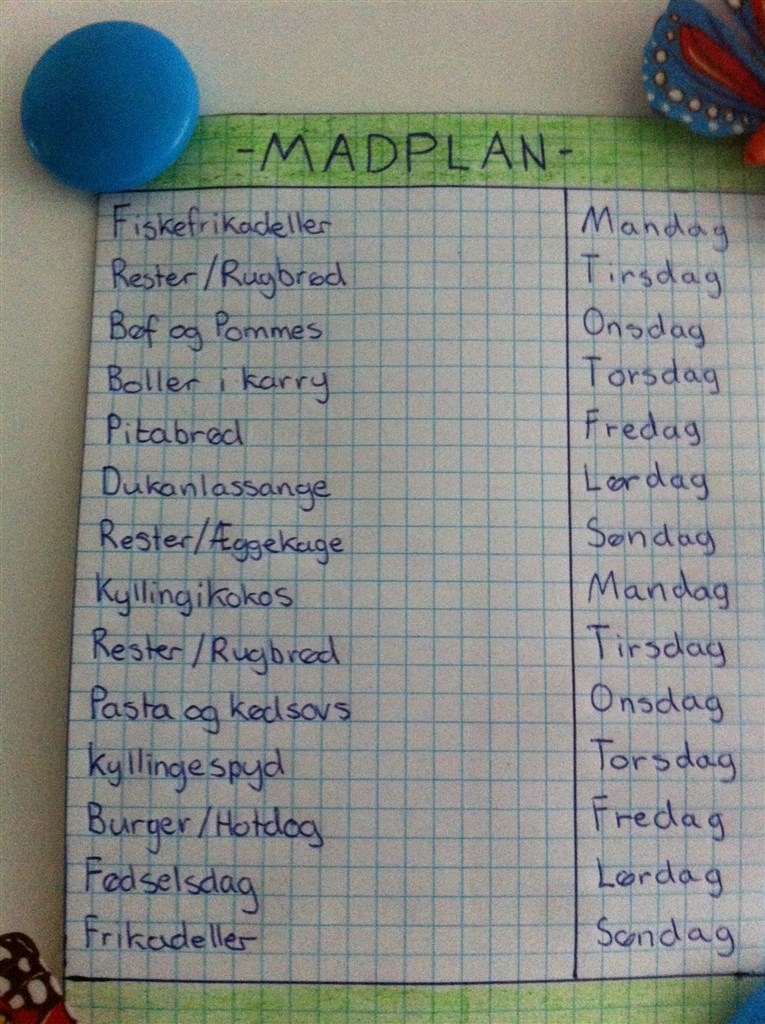 -MADPLAN-
Fiskefrikadeller Mandag
Rester/Rugbrød Tirsdag
Bøf og Pommes Onsdag
Boller i karry Torsdag
Pitabrød Fredag
Dukanlassange Lørdag
Rester/Æggekage Søndag
Kyllingikokos Mandag
Rester/Rugbrød Tirsdag
Pasta og kødsovs Onsdag
Kyllingespyd Torsdag
Burger/Hotdog Fredag
Fødselsdag Lørdag
Frikadeller Søndag